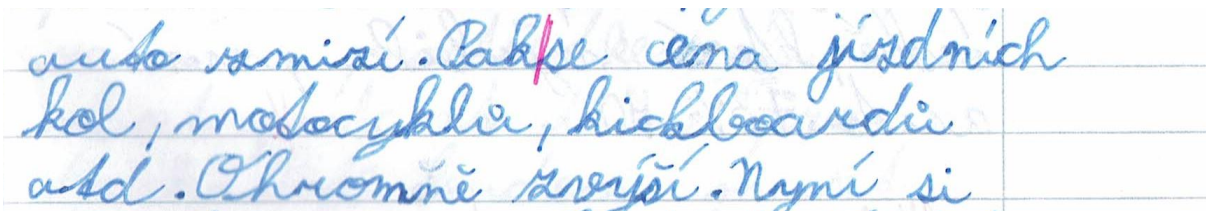 auto zmizí. Pak se cena jízdních
kol, motocyklů, kickboardů
atd. Ohromně zvýší. Nyní si